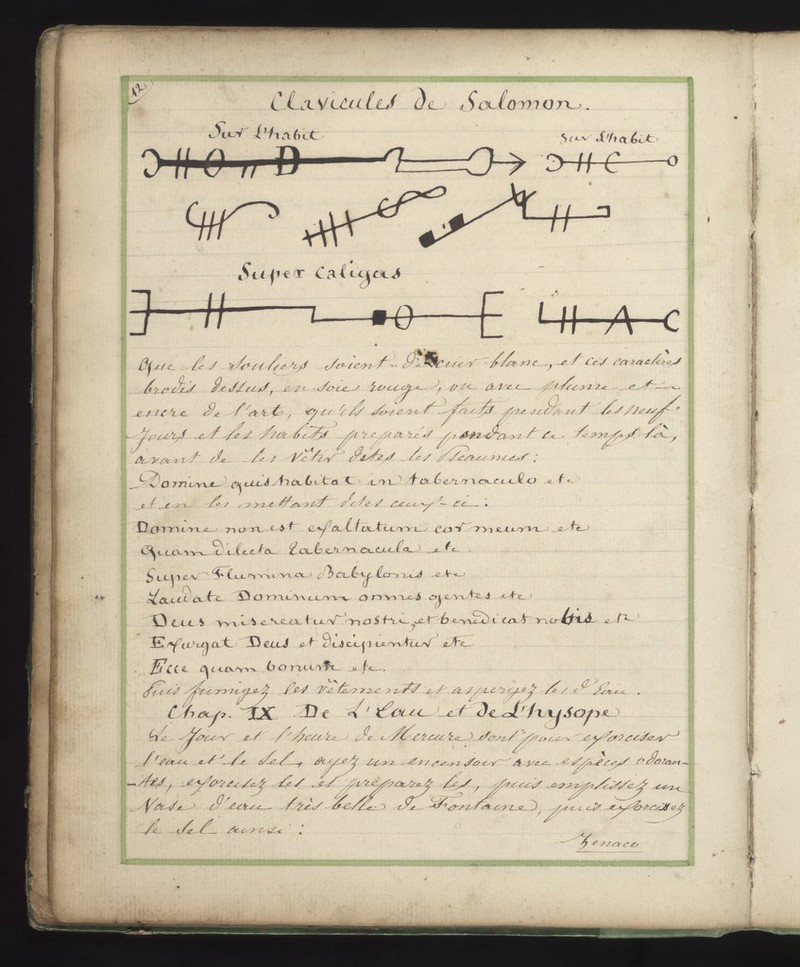 12
Clavicules De Salomon.
Sur L'habit
Sur L'habit
Super Caligas
Que les souliers soient de cuir blanc, et ces caractères
brodés dessus, en soie rouge, ou avec plume et
encre de l'art, qu'ils soient faits pendant les neuf
Jours et les habits preparés pendant ce temps là,
avant de les vêtir dites les Pseaumes:
Domine quis habitat in tabernaculo etc
et en les mettant dites ceux-ci:
Domine non est exaltatum cor meum etc
Quam dilecta tabernacula etc.
Super Flumina Babylonis etc
Laudate Dominum omnes gentes etc
Deus misereatur nostri, et benedicat nobis etc
Exurgat Deus et discipientur etc
Ecce quam bonum etc.
Puis fumigez les vêtements et aspergez les d'Eau.
Chap. IX De L'Eau et De L'hysope
Le Jour et l'heure de Mercure sont pour exorciser
l'eau et le Sel, ayez un encensoir avec espèces odoran-
-tes, exorcisez les et préparez les, puis emplissez un
Vase d'eau très belle de Fontaine, puis exorcisez
le Sel ainsi:
Zenaco